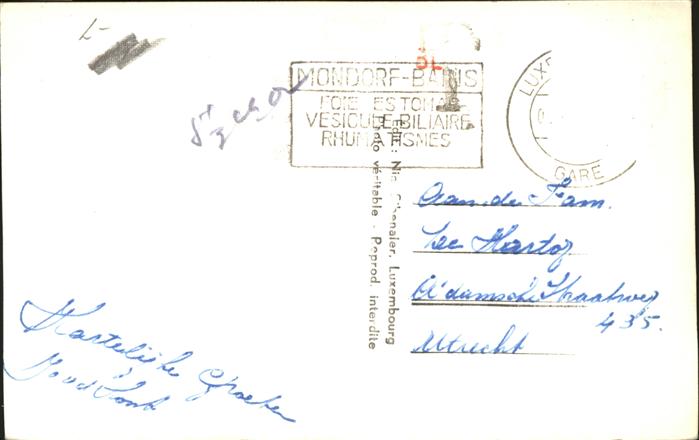 MONDORF-BAINS
FOIE ESTOMAC
VESICULE BILIAIRE
RHUMATISMES
GARE
Edit.: Nic. Sibenaler, Luxembourg
Photo véritable · Reprod. interdite
Aan de Fam.
De Hartog
A'damsche Straatweg
435.
Utrecht
Hartelijke Groeten